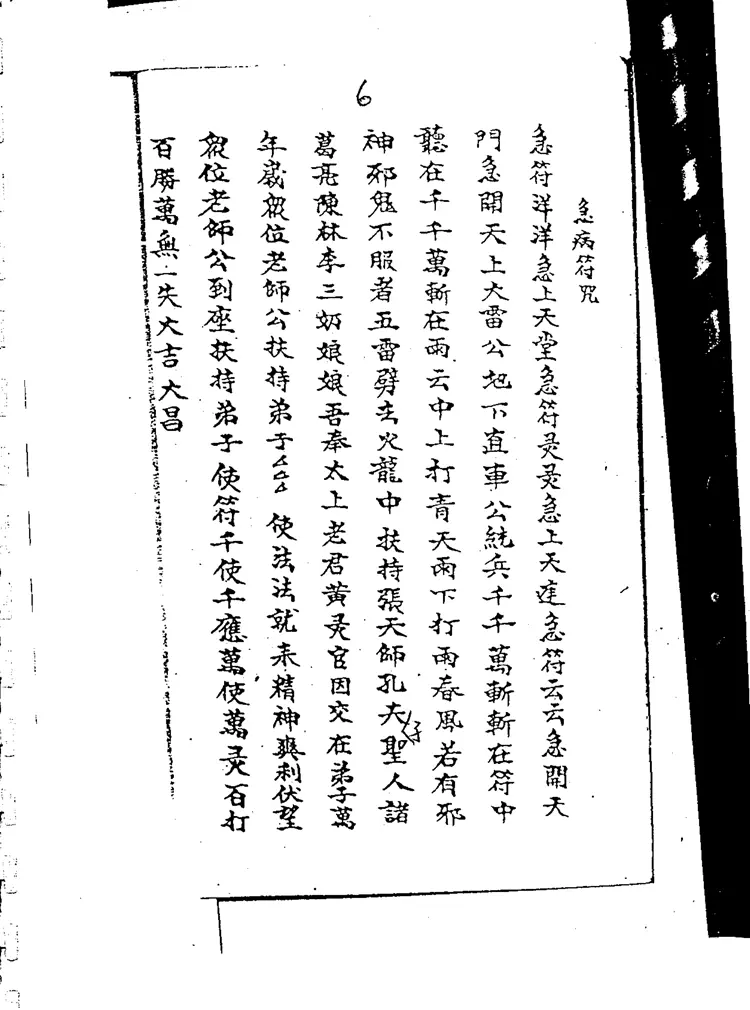 6
急病符咒
急符洋洋急上天堂急符灵灵急上天庭急符云云急開天
門急開天上大雷公地下直車公統兵千千萬斬斬在符中
聽在千千萬斬在雨云中上打青天雨下打雨春風若有邪
神邪鬼不服者五雷劈在火龍中扶持張天師孔夫仔聖人諸
葛亮陳林李三奶娘娘吾奉太上老君黄灵官因交在弟子萬
年歲眾位老師公扶持弟子△△△使法法就来精神爽利伏望
眾位老師公到座扶持弟子使符千使千應萬使萬灵百打
百勝萬無一失大吉大昌